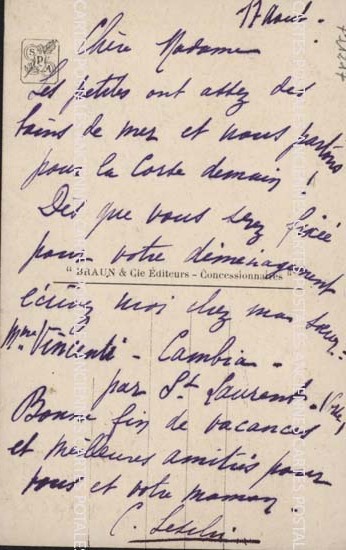 17 Août.
SPA
Chère Madame
Les petites ont assez des
bains de mer et nous partons
pour la Corse demain !
Dès que vous serez fixée
pour votre déménagement
" BRAUN & Cie Éditeurs - Concessionnaires "
écrivez moi chez ma sœur :
Mme Vincenti - Cambia -
par St Laurent.
Bonne fin de vacances
et meilleures amitiés pour
vous et votre maman
C.